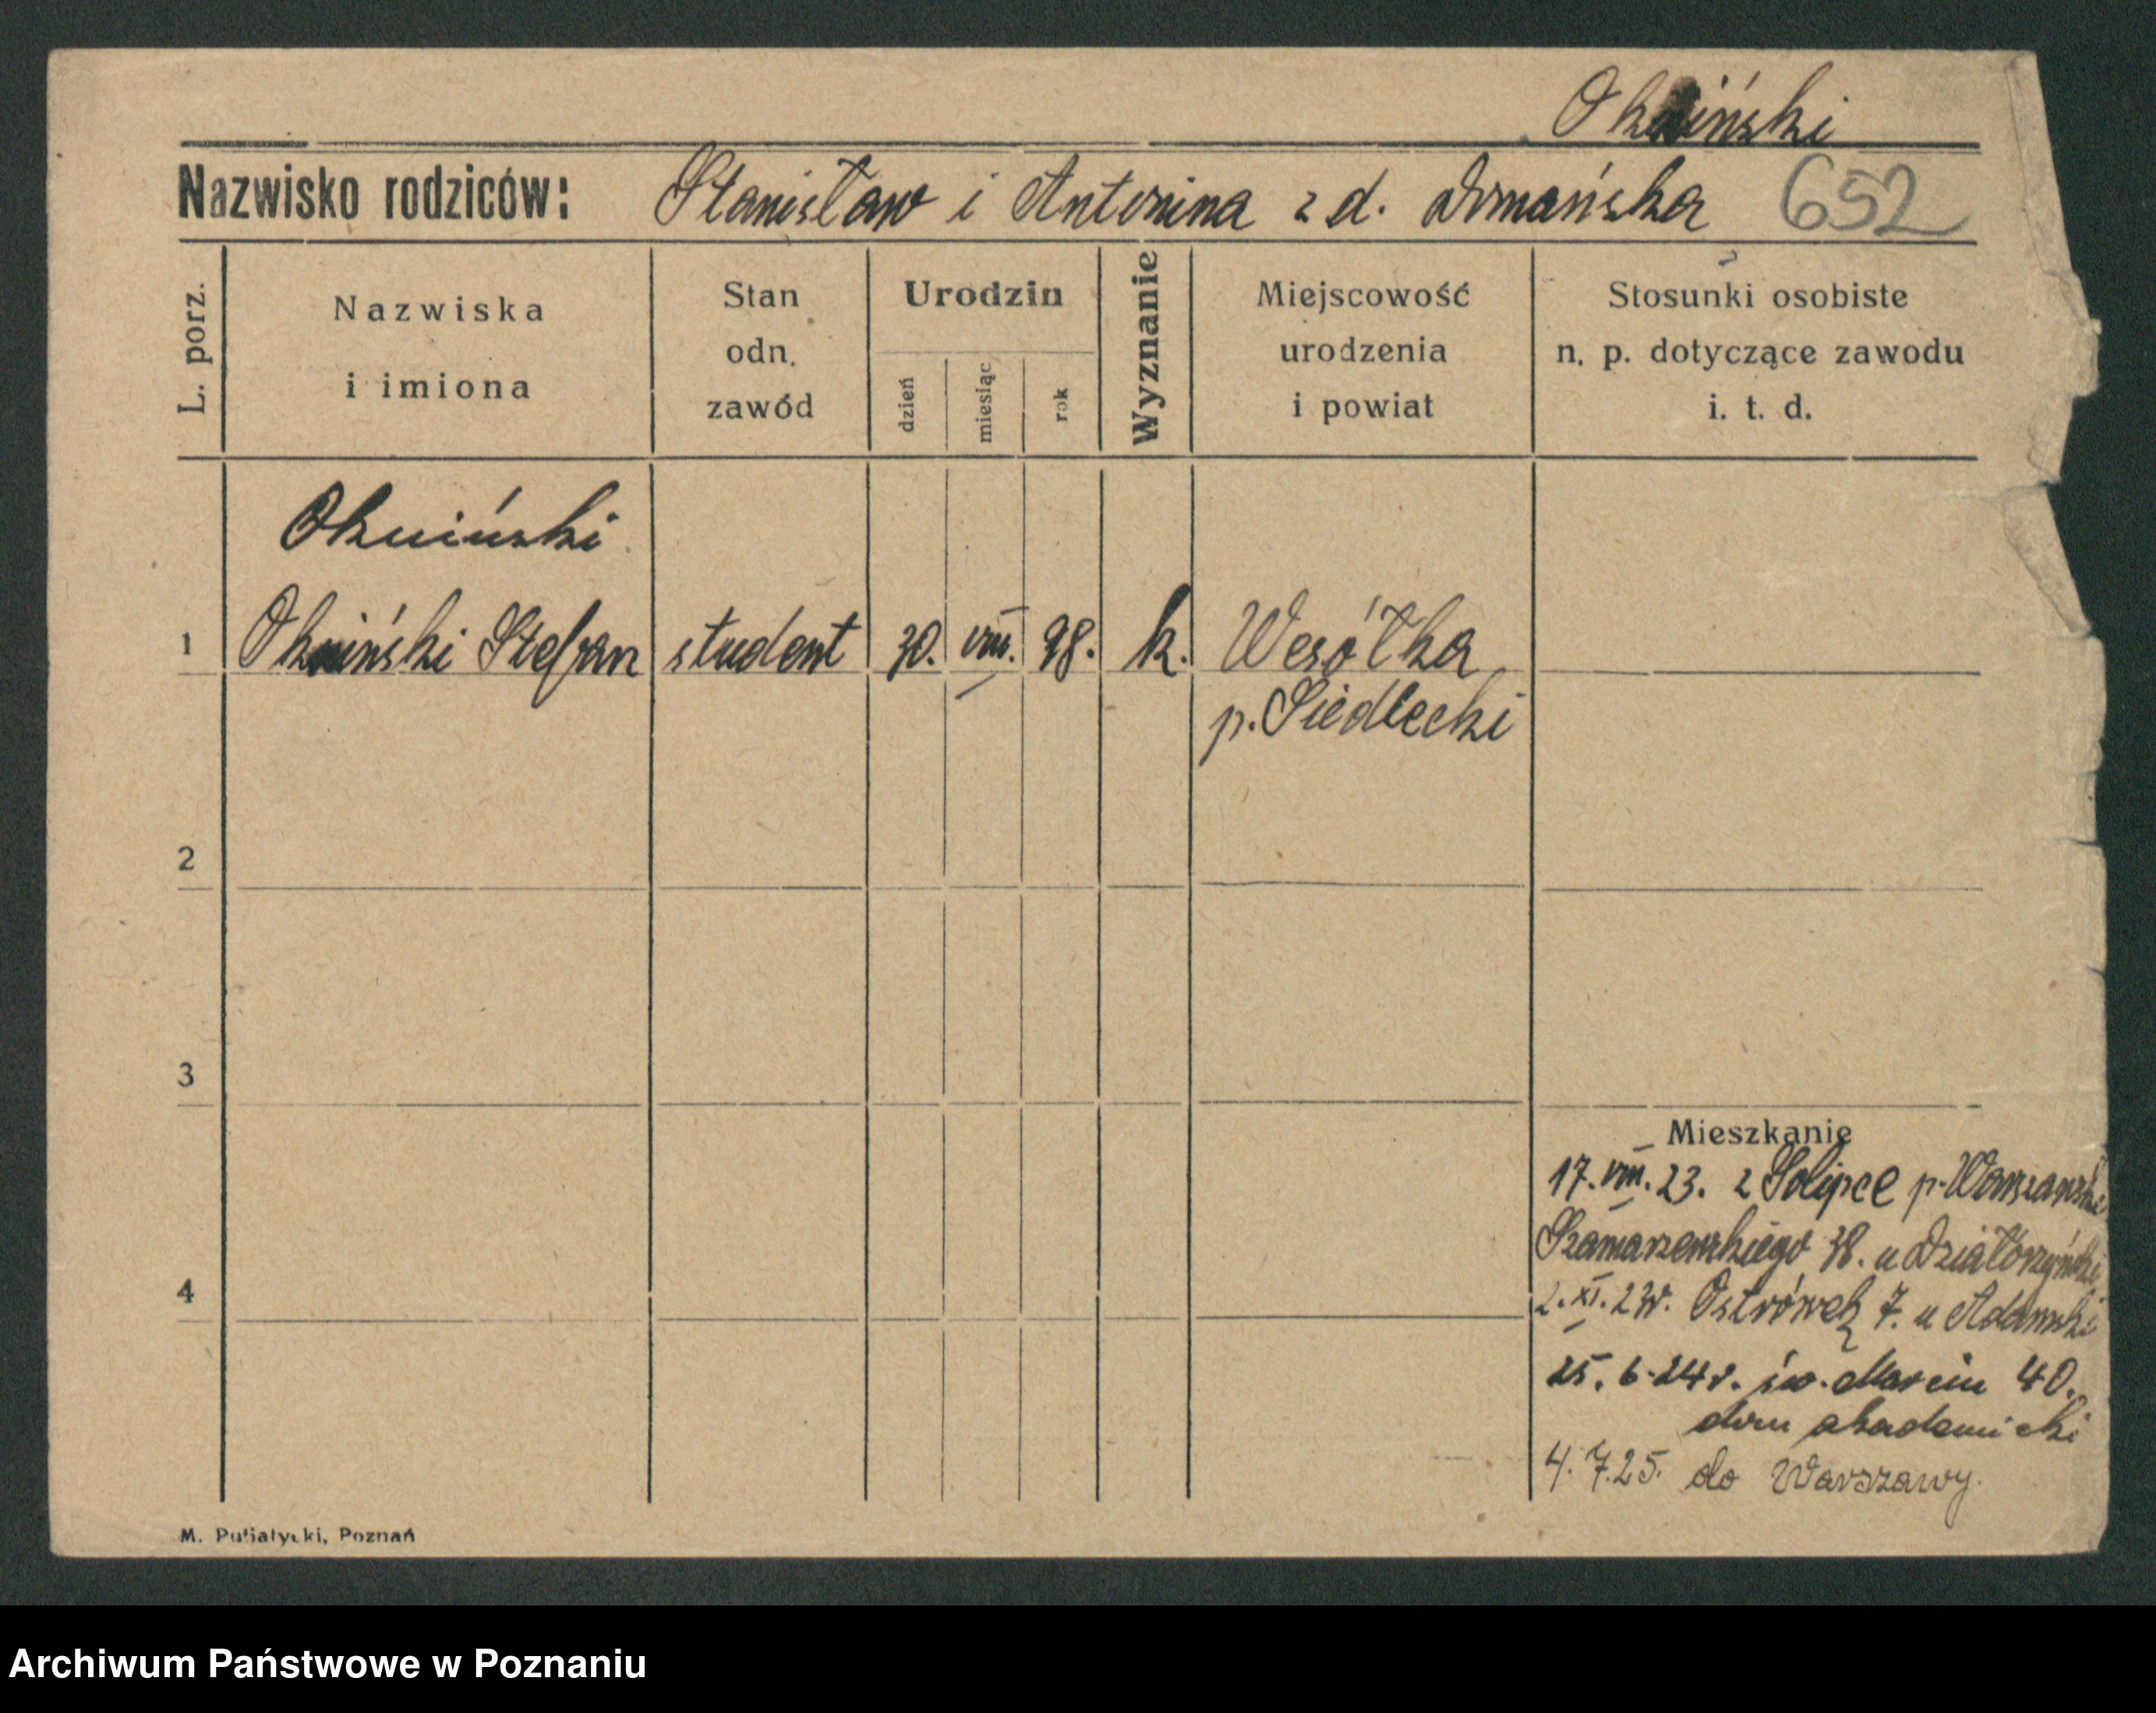 Okniński
Nazwisko rodziców: Stanisław i Antonina z d. Domańska 652
L. porz.
Nazwiska
i imiona
Stan
odn.
zawód
Urodzin
dzień
miesiąc
rok
Wyznanie
Miejscowość
urodzenia
i powiat
Stosunki osobiste
n. p. dotyczące zawodu
i. t. d.
Okniński
1 Okniński Stefan student 30. VIII. 98. k. Wesółka
p. Siedlecki
2
3
4
Mieszkanie
17. VIII. 23. z Solipce p. Warszawski
Szamarzewskiego 38. u
2. XI. 23r. Ostrówek 7. u Adamski
25. 6. 24 r. św. Marcin 40.
dom akademicki
4. 7. 25. do Warszawy.
M. Putiatycki, Poznań
Archiwum Państwowe w Poznaniu